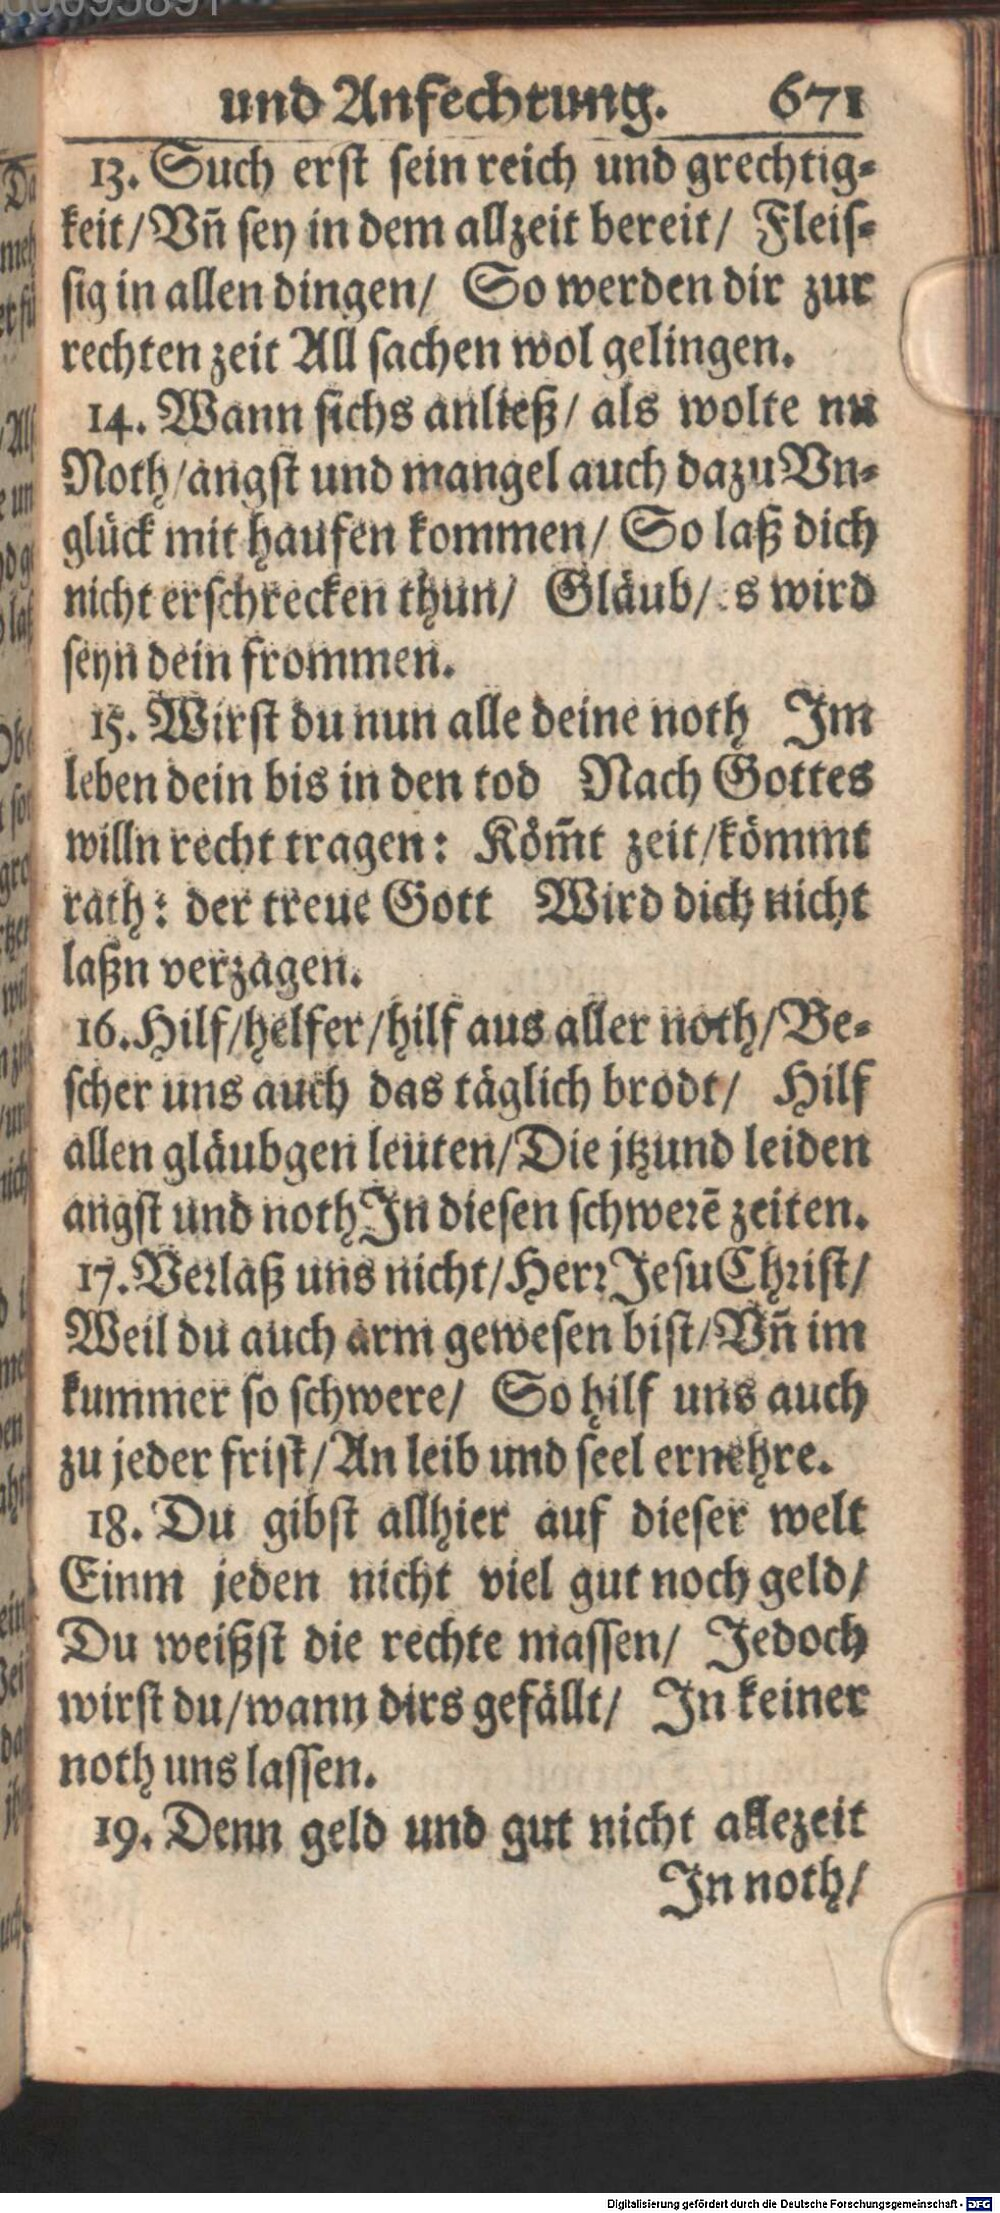 und Anfechtung. 671
13. Such erst sein reich und grechtig-
keit/ Vñ sey in dem allzeit bereit/ Fleis-
sig in allen dingen/ So werden dir zur
rechten zeit All sachen wol gelingen.
14. Wann sichs anließ/ als wolte nu
Noth/ angst und mangel auch dazu Vn-
glück mit haufen kommen/ So laß dich
nicht erschrecken thun/ Gläub/ s wird
seyn dein frommen.
15. Wirst du nun alle deine noth Im
leben dein bis in den tod Nach Gottes
willn recht tragen: Köm̄t zeit/ kömmt
rath: der treue Gott Wird dich nicht
laßn verzagen.
16. Hilf/ helfer/ hilf aus aller noth/ Be-
scher uns auch das täglich brodt/ Hilf
allen gläubgen leuten/ Die jtzund leiden
angst und noth In diesen schwerē zeiten.
17. Verlaß uns nicht/ Herr Jesu Christ/
Weil du auch arm gewesen bist/ Vñ im
kummer so schwere/ So hilf uns auch
zu jeder frist/ An leib und seel ernehre.
18. Du gibst allhier auf dieser welt
Einm jeden nicht viel gut noch geld/
Du weißst die rechte massen/ Jedoch
wirst du/ wann dirs gefällt/ In keiner
noth uns lassen.
19. Denn geld und gut nicht allezeit
In noth/
Digitalisierung gefördert durch die Deutsche Forschungsgemeinschaft - DFG